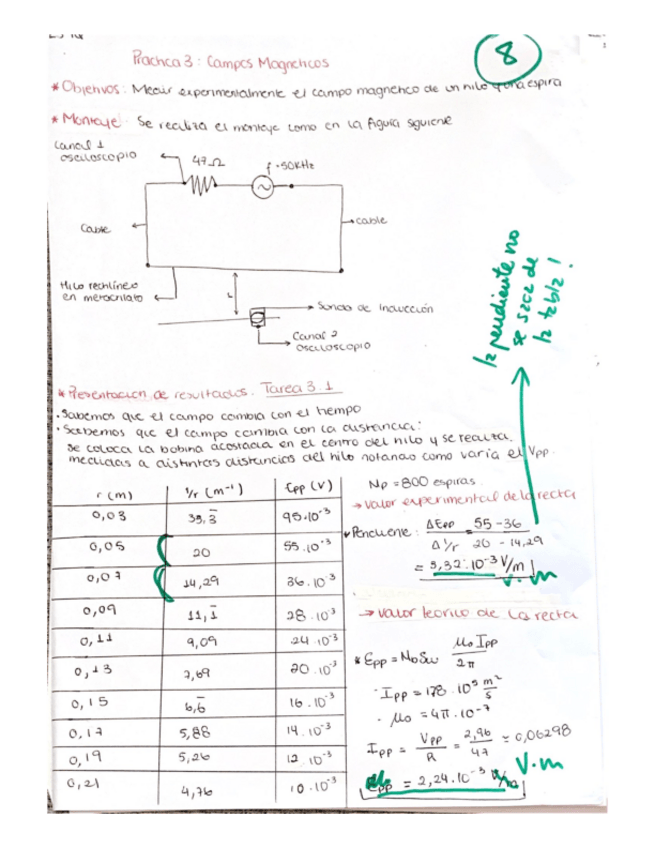 8
Práctica 3: Campos Magnéticos
* Objetivos: Medir experimentalmente el campo magnético de un hilo y una espira
* Montaje: Se realiza el montaje como en la figura siguiente
Canal 1
osciloscopio
47Ω
f = 50KHz
Cable
cable
Hilo rectilíneo
en metacrilato
r
Sonda de inducción
Canal 2
osciloscopio
la pendiente no
se saca de
la tabla!
* Presentación de resultados. Tarea 3.1
· Sabemos que el campo cambia con el tiempo
· Sabemos que el campo cambia con la distancia:
Se coloca la bobina acostada en el centro del hilo y se realiza
medidas a distintas distancias del hilo notando como varía el Vpp.
r (m) 1/r (m⁻¹) Epp (V)
0,03 33,3 95·10⁻³
0,05 20 55·10⁻³
0,07 14,29 36·10⁻³
0,09 11,1 28·10⁻³
0,11 9,09 24·10⁻³
0,13 7,69 20·10⁻³
0,15 6,6 16·10⁻³
0,17 5,88 14·10⁻³
0,19 5,26 12·10⁻³
0,21 4,76 10·10⁻³
Np = 800 espiras
→ valor experimental de la recta
Pendiente: ΔEpp / Δ1/r = 55-36 / 20-14,29
= 3,32·10⁻³ V/m
V·m
→ valor teórico de la recta
* Epp = NpSω μ₀ Ipp / 2π
· Ipp = 178·10⁵ m²/s
· μ₀ = 4π·10⁻⁷
Ipp = Vpp / R = 2,96 / 47 = 0,06298
V·m
= 2,24·10⁻³